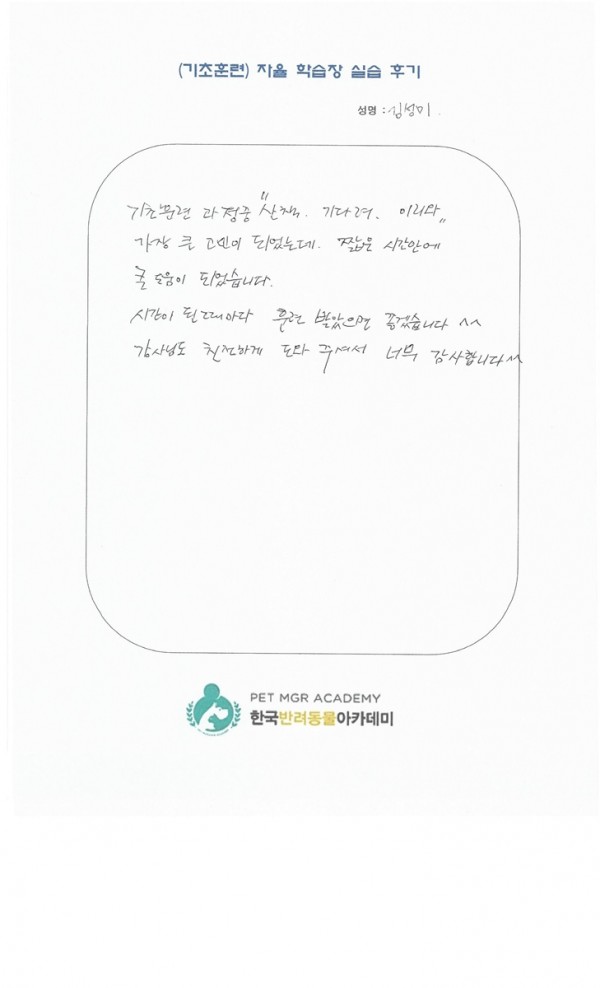 (기초훈련) 자율 학습장 실습 후기
성명 : 심성미
기초훈련 과정중 "산책. 기다려. 이리와"
가장 큰 고민이 되었는데. 짧은 시간안에
큰 도움이 되었습니다.
시간이 될때마다 훈련 받았으면 좋겠습니다 ^^
강사님도 친절하게 도와 주셔서 너무 감사합니다^^
PET MGR ACADEMY
한국반려동물아카데미